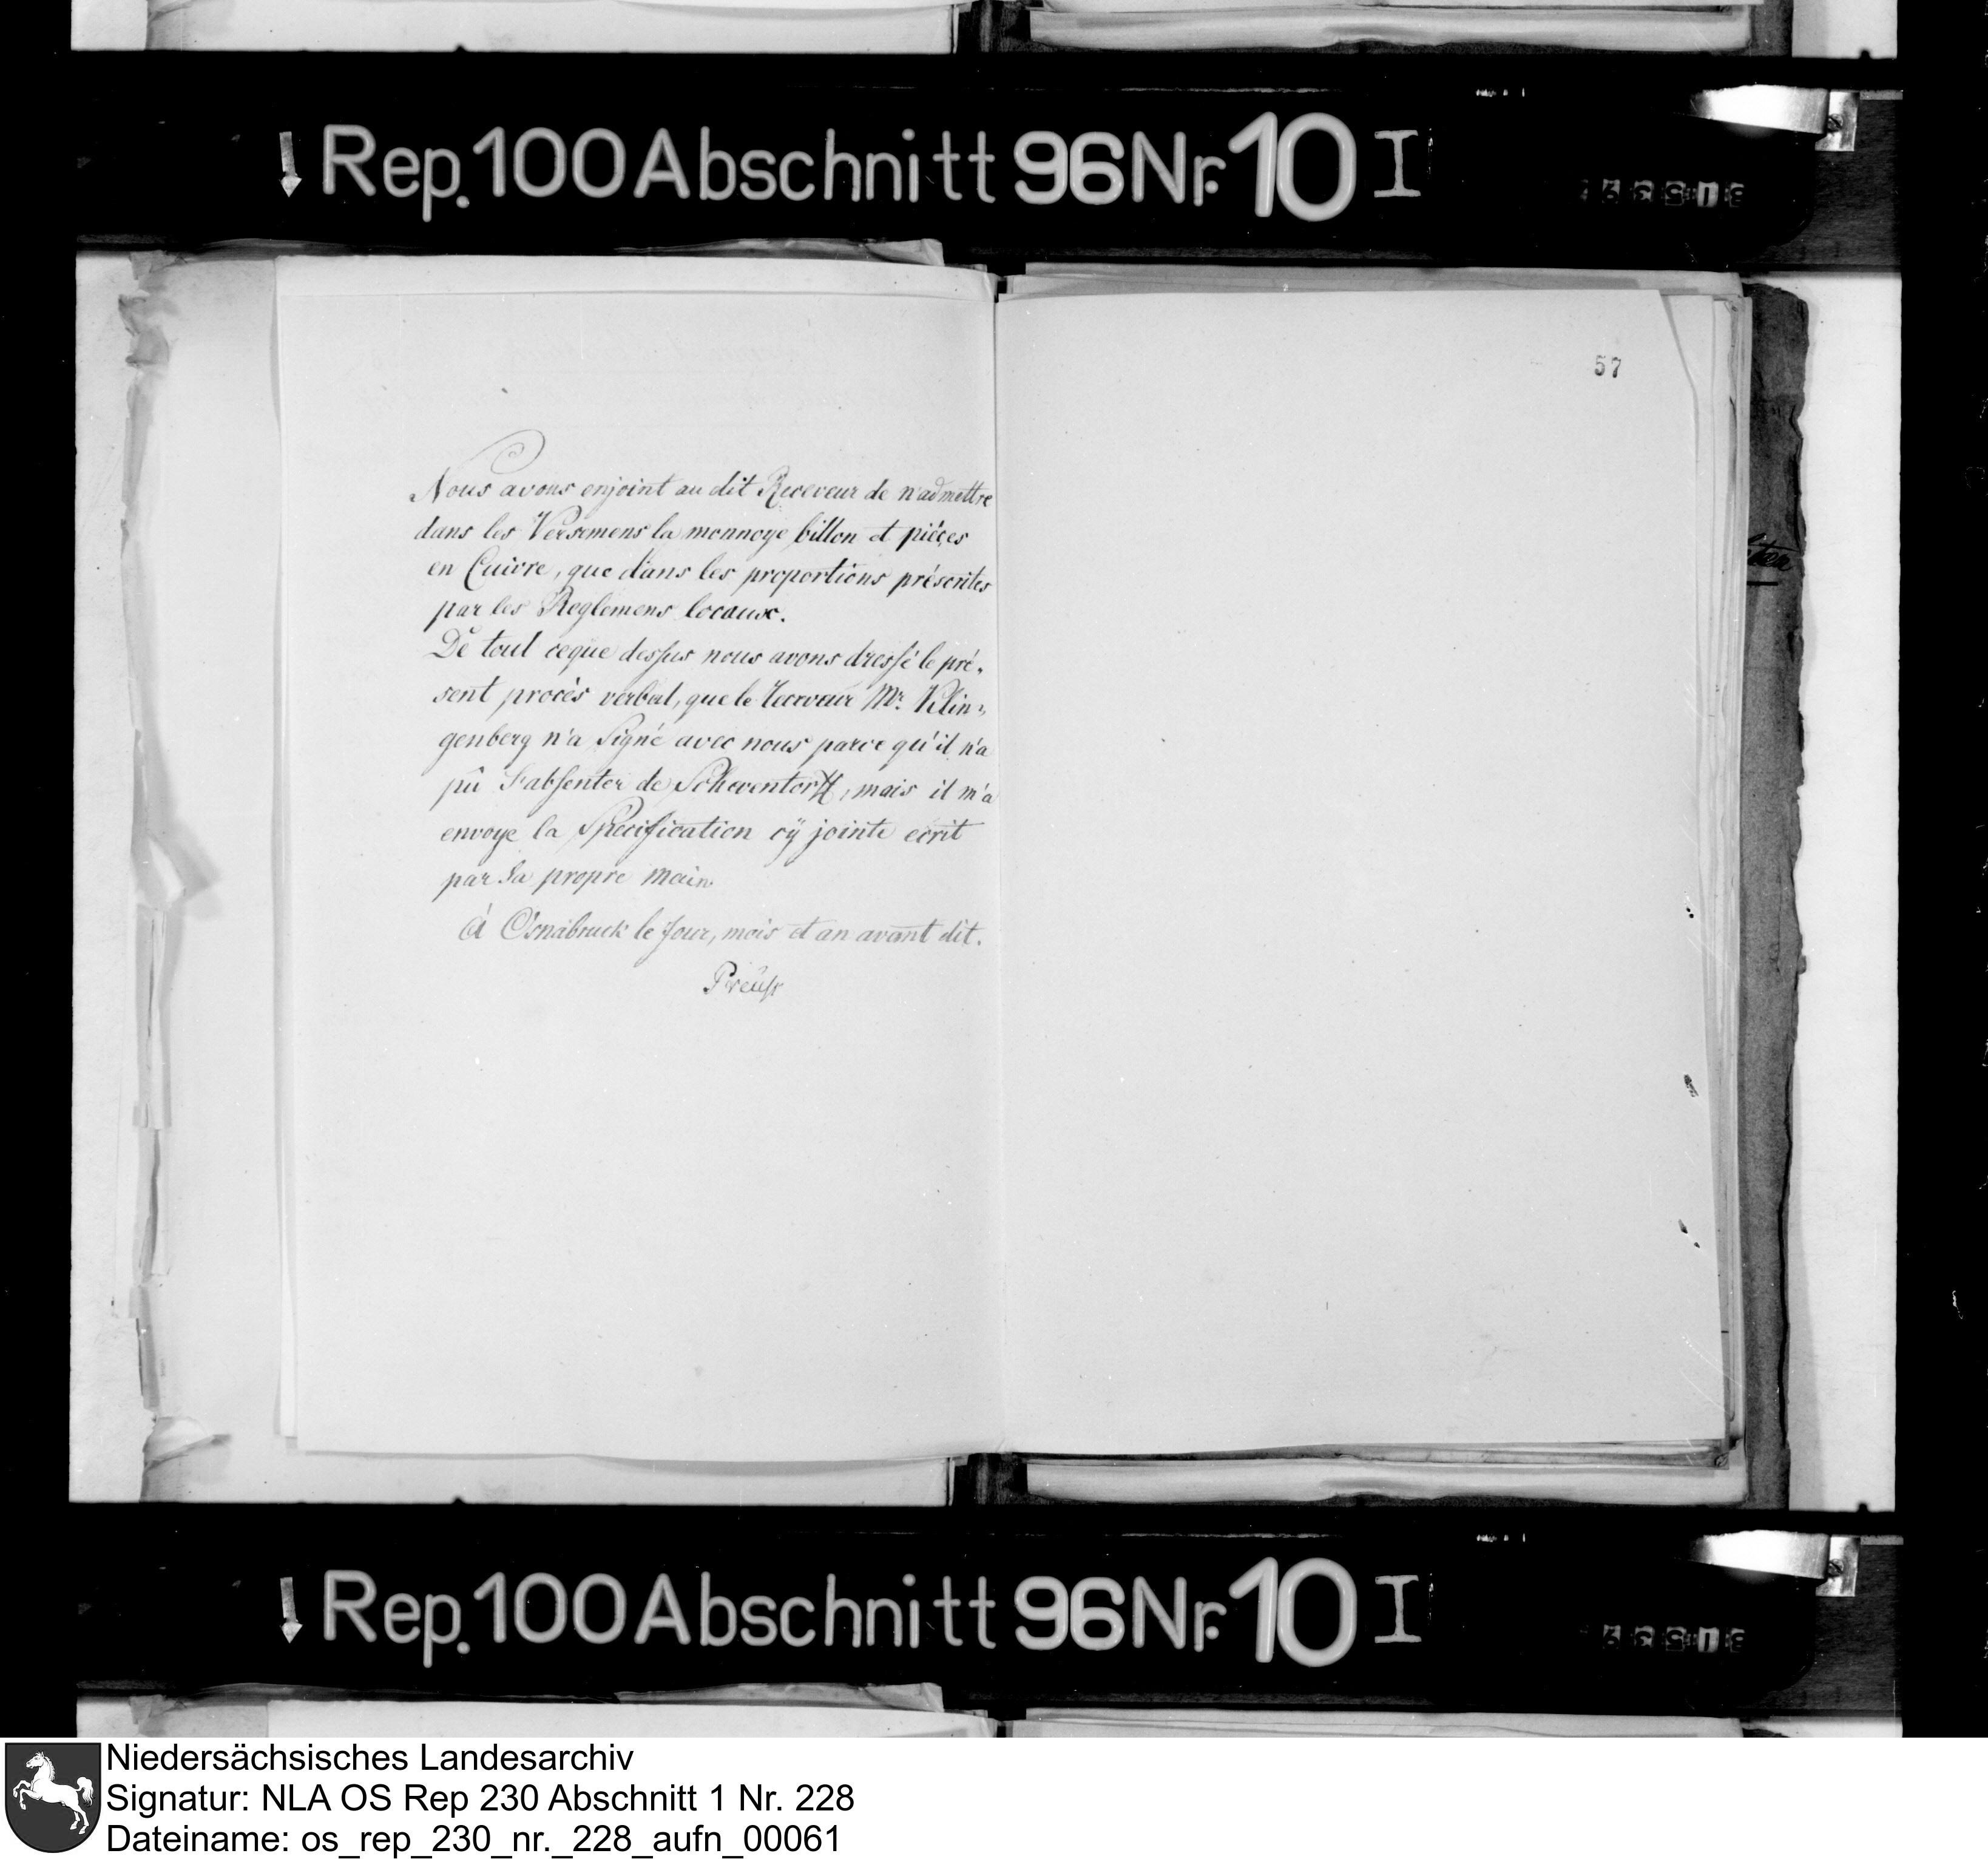 Rep. 100 Abschnitt 96 Nr. 10 I
57
Nous avons enjoint au dit Receveur de n'admettre
dans les Versemens la monnoye billon et pièces
en Cuivre, que dans les proportions préscrites
par les Reglemens locaux.
De tout ceque dessus nous avons dressé le pré-
sent procès verbal, que le Mr. Klin-
genberg n'a Signé avec nous parce qu'il n'a
pû S'absenter de Scheventorff, mais il m'a
envoye la Specification cÿ jointe ecrit
par Sa propre main
à Osnabruck le Jour, mois et an avant dit.
Preuß
Rep. 100 Abschnitt 96 Nr. 10 I
Niedersächsisches Landesarchiv
Signatur: NLA OS Rep 230 Abschnitt 1 Nr. 228
Dateiname: os_rep_230_nr._228_aufn_00061